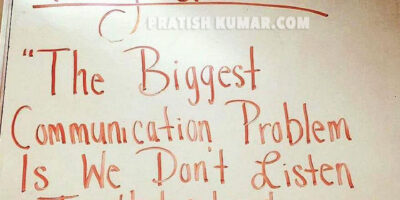 PRATISH KUMAR.COM
"The Biggest
Communication Problem
Is We Don't Listen